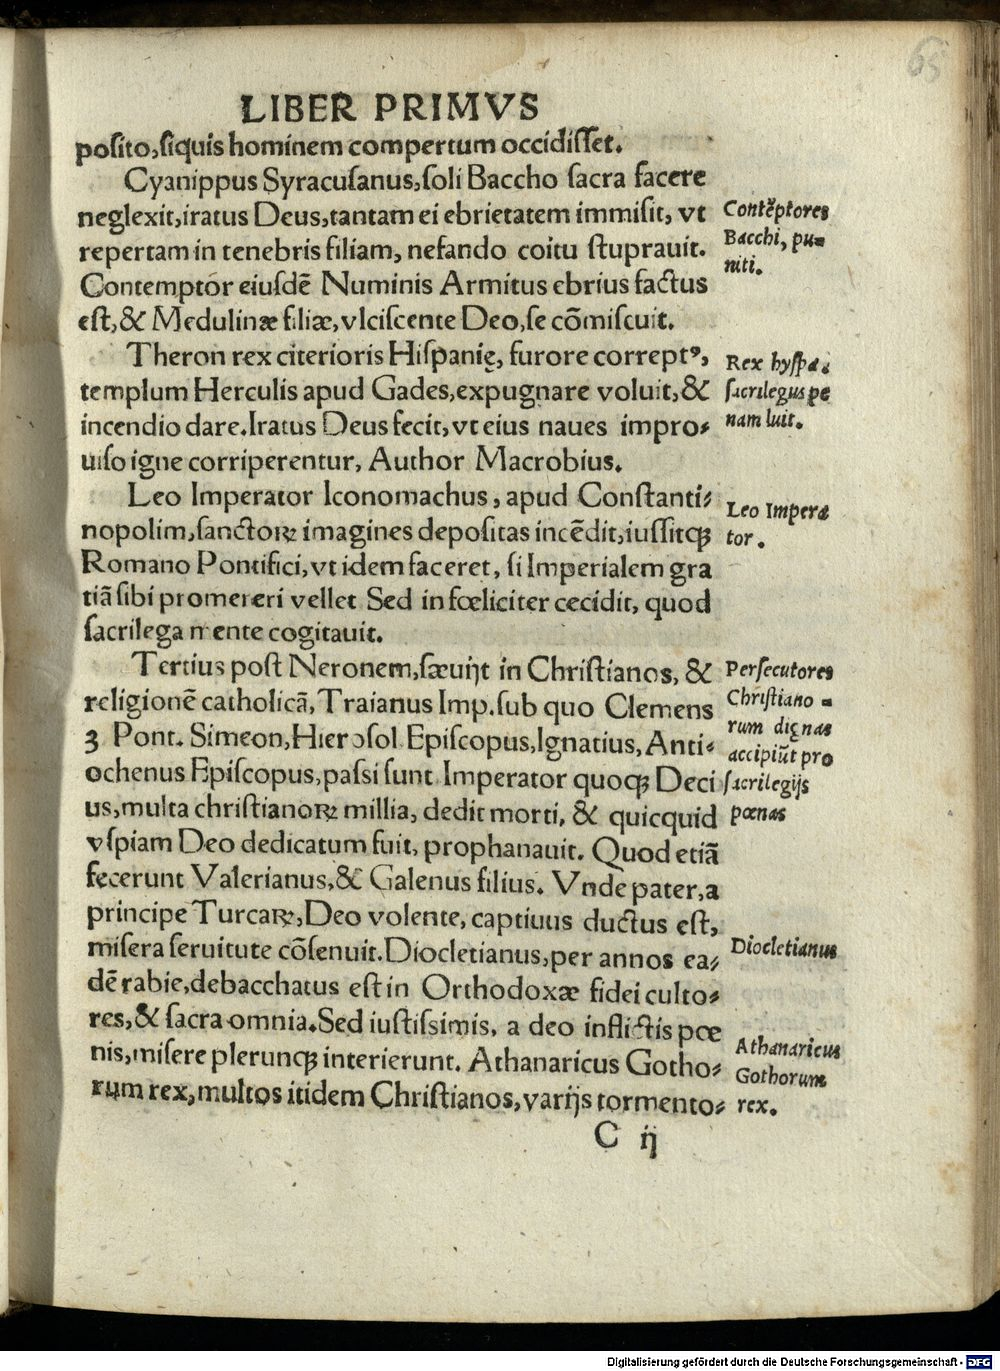 65
LIBER PRIMVS
poſito,ſiquis hominem compertum occidiſſet.
Cyanippus Syracuſanus,ſoli Baccho ſacra facere
neglexit,iratus Deus,tantam ei ebrietatem immiſit, vt
repertam in tenebris filiam, nefando coitu ſtuprauit.
Contemptor eiuſdẽ Numinis Armitus ebrius factus
eſt,& Medulinæ filiæ,vlciſcente Deo,ſe cõmiſcuit.
Contẽptores
Bacchi, pu=
niti.
Theron rex citerioris Hiſpanię, furore correptꝰ,
templum Herculis apud Gades,expugnare voluit,&
incendio dare.Iratus Deus fecit,vt eius naues impro⸗
uiſo igne corriperentur, Author Macrobius.
Rex hyſpã.
ſacrilegus pe
nam luit.
Leo Imperator Iconomachus, apud Conſtanti⸗
nopolim,ſanctoꝝ imagines depoſitas incẽdit,iuſſitqꝫ
Romano Pontifici,vt idem faceret, ſi Imperialem gra
tiã ſibi promereri vellet Sed infœliciter cecidit, quod
ſacrilega mente cogitauit.
Leo Impera
tor.
Tertius poſt Neronem,ſæuijt in Chriſtianos, &
religionẽ catholicã,Traianus Imp.ſub quo Clemens
3 Pont. Simeon,Hieroſol Epiſcopus,Ignatius, Anti⸗
ochenus Epiſcopus,paſsi ſunt Imperator quoqꝫ Deci
us,multa chriſtianoꝝ millia, dedit morti, & quicquid
vſpiam Deo dedicatum fuit, prophanauit. Quod etiã
fecerunt Valerianus,& Galenus filius. Vnde pater,a
principe Turcaꝝ,Deo volente, captiuus ductus eſt,
miſera ſeruitute cõſenuit.Diocletianus,per annos ea⸗
dẽ rabie,debacchatus eſt in Orthodoxæ fidei culto⸗
res,& ſacra omnia.Sed iuſtiſsimis, a deo inflictis pœ
nis,miſere plerunqꝫ interierunt. Athanaricus Gotho⸗
rum rex,multos itidem Chriſtianos,varijs tormento⸗
Perſecutores
Chriſtiano =
rum dignas
accipiũt pro
ſacrilegijs
pœnas
Diocletianus
Athanaricus
Gothorum
rex.
C ij
Digitalisierung gefördert durch die Deutsche Forschungsgemeinschaft - DFG